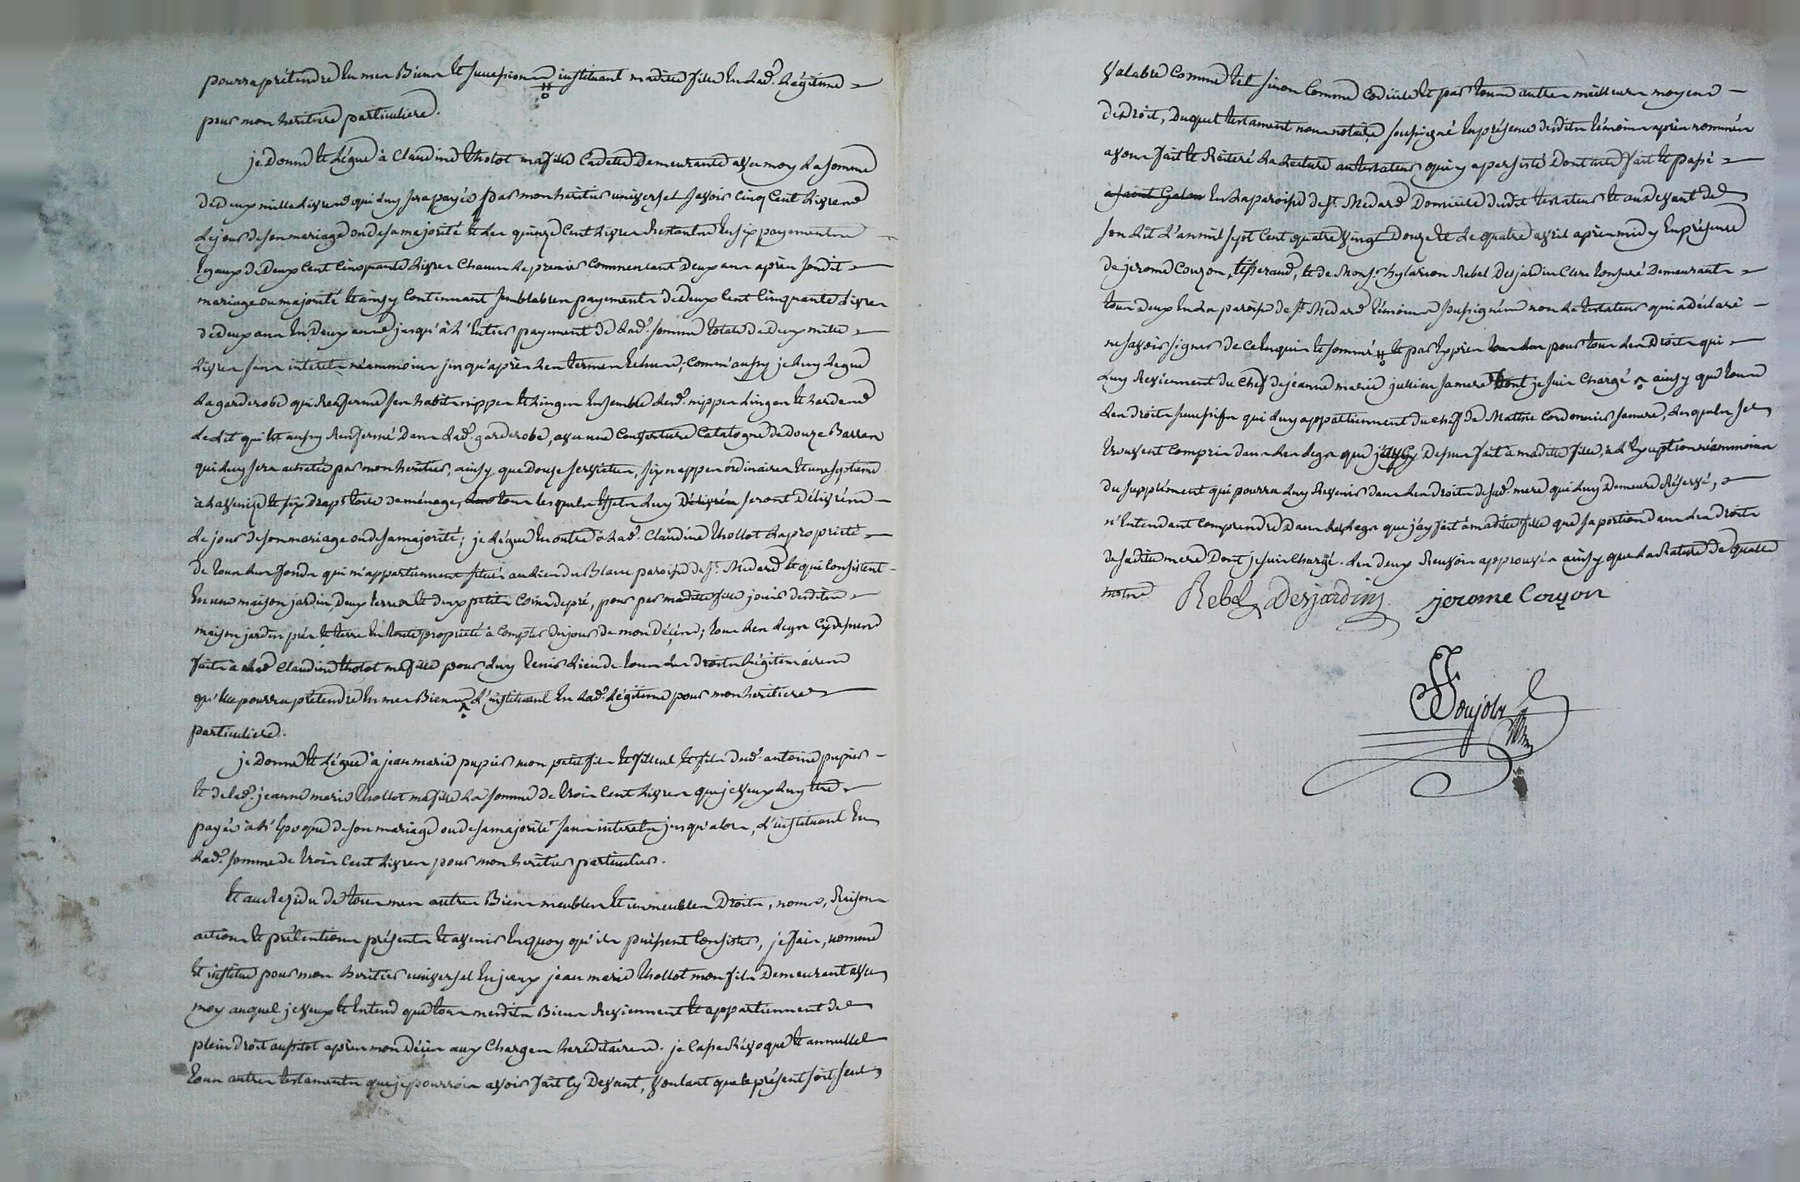 pourra prétendre en mes Biens et succession # instituant maditte fille en lad.e Légitime
pour mon héritiere particuliere.
je Donne et Légue à Claudine thollot ma fille Cadette Demeurante avec moy La somme
de deux mille Livres qui luy sera payée par mon héritier universel savoir Cinq Cent Livres
Le jour de son mariage ou de sa majorité et Les quinze Cent Livres restantes en six payements
Egaux de Deux Cent Cinquante Livres Chacun le premier Commencant Deux ans après sondit
mariage ou majorité et ainsy Continuant semblables payements de deux Cent Cinquante Livres
de deux ans en Deux années jusqu'à L'entier payement de lad.e somme totale de Deux mille
Livres sans interets néanmoins jusqu'après Les termes Echus; Comm'aussy je Luy Legue
La garderobe qui renferme ses habits nippes et Linges Ensemble Lesd. nippes Linges et hardes
Le Lit qui est aussy renfermé Dans lad.e garderobe, avec une Couverture Catalogne de douze Barres
qui Luy sera achetée par mon héritier, ainsy que Douze serviettes, six nappes ordinaires et une septieme
à La venize et six Draps toile de ménage, tous lesquels Effets Luy seront Délivrés
Le jour de son mariage ou de sa majorité; je Légue En outre à Lad.e Claudine thollot La propriété
de tous Les fonds qui m'appartiennent situés au Lieu du Blanc paroisse de St. Medard et qui Consistent
En une maison jardin Deux terres et deux petits Coins de pré, pour par maditte fille jouir desdits
maison jardin prés et terre En toute propriété à Compter du jour de mon Décés; tous Les Legs Cy dessus
faits à Lad.e Claudine thollot ma fille pour Luy tenir Lieu de tous Les droits Légitimaires
qu'elle pourra prétendre En mes Biens L'instituant En Lad.e Légitime pour mon héritiere
particuliere.
je Donne et Légue à jean marie pupier mon petit fils et filleul et fils dud. antoine pupier
et de lad.e jeanne marie thollot ma fille La somme de trois Cent Livres que je veux Luy être
payée à L'Epoque de son mariage ou de sa majorité sans interets jusqu'alors, L'instituant En
Lad.e somme de trois Cent Livres pour mon héritier particulier.
Et au résidu de tous mes autres Biens meubles et immeubles Droits, noms, Raisons
actions et prétentions présents et avenir En quoy qu'ils puissent Consister, je fais, nomme
et institue pour mon héritier universel En jceux jean marie thollot mon fils Demeurant avec
moy auquel je veux et Entend que tous mesdits Biens Reviennent et appartiennent de
plein Droit aussitot après mon Décès aux Charges héréditaires. je Casse Révoque et annulle
tous autres testaments que je pourrois avoir fait Cy Devant, voulant que le présent soit seul
valable Comme tel sinon Comme Codicile et par tous autres meilleurs moyens
de Droit, Duquel testament nous notaire soussigné En présence desdits témoins après nommés
avons fait et Réiteré La Lecture au testateur qui y a persisté Dont acte fait et passé
En La paroisse de St. Medard Domicile dudit testateur et au devant de
son Lit L'an mil sept Cent quatre vingt Douze et Le quatre avril après midy En présence
de jerome Couzon, tisserand, et de Mons.r hylarion Rebel Desjardins Clerc tonsuré Demeurants
tous Deux En La paroisse de St. Medard témoins soussignés non Le testateur qui a déclaré
ne savoir signer de Ce Enquis et sommé # et par Exprès pour tous Les Droits qui
Luy Reviennent du Chef de jeanne marie jullien sa mere Dont je suis Chargé ainsy que tous
Les droits successifs qui Luy appartiennent du Chef de Mathie Cordonnier sa mere, Lesquels se
trouvent Compris Dans Les Legs que j'ay Cy Dessus fait à maditte fille, à L'Exception néanmoins
du supplément qui pourra Luy Revenir dans Les Droits de sad.e mere qui Luy Demeure Réservé,
n'Entendant Comprendre Dans Les Legs que j'ay fait à maditte fille que sa portion dans Les droits
de sa ditte mere Dont je suis Chargé. Les deux Renvois approuvés ainsy que La Rature de quatre
mots
Rebel Desjardins jerome Couzon